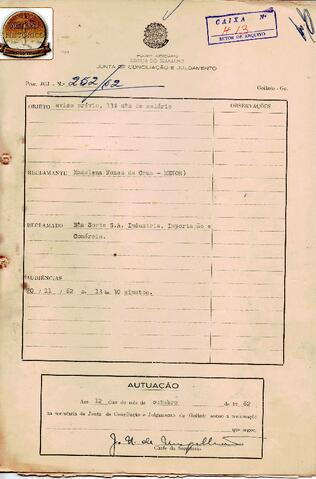 PODER JUDICIÁRIO
JUSTIÇA DO TRABALHO
JUNTA DE CONCILIAÇÃO E JULGAMENTO
CAIXA Nº
413
SETOR DE ARQUIVO
Proc. JCJ - N.º 262/62
Goiânia - Go.
OBJETO aviso prévio, 13º mês de salário
OBSERVAÇÕES
RECLAMANTE Madalena Nunes da Cruz - MENOR)
RECLAMADO Bôa Sorte S.A. Industria, Importação e
Comércio.
AUDIÊNCIAS
20 / 11 / 62 às 13 10 minutos.
AUTUAÇÃO
Aos 12 dias do mês de outubro de 19 62
na secretaria da Junta de Conciliação e Julgamento de Goiânia autuo a reclamação
que segue.
Chefe da Secretaria